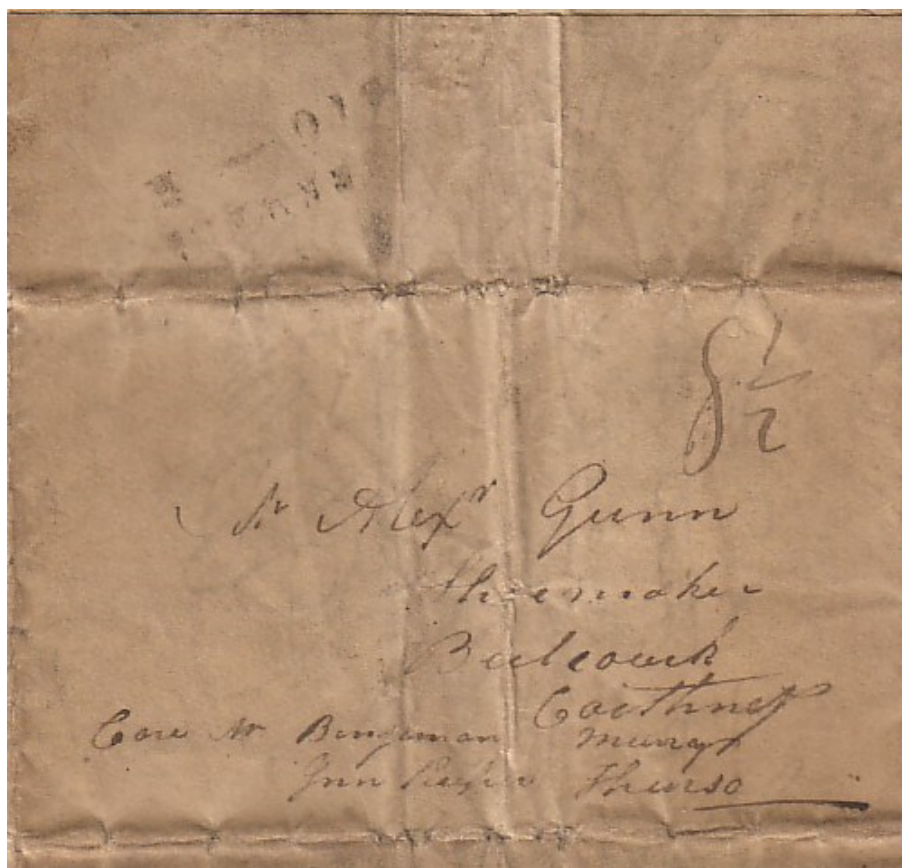 8 1/2
Mr Alexr Gunn
Shoemaker
Caithness
Care Mr Benjeman Murray
Inn Keeper Thurso